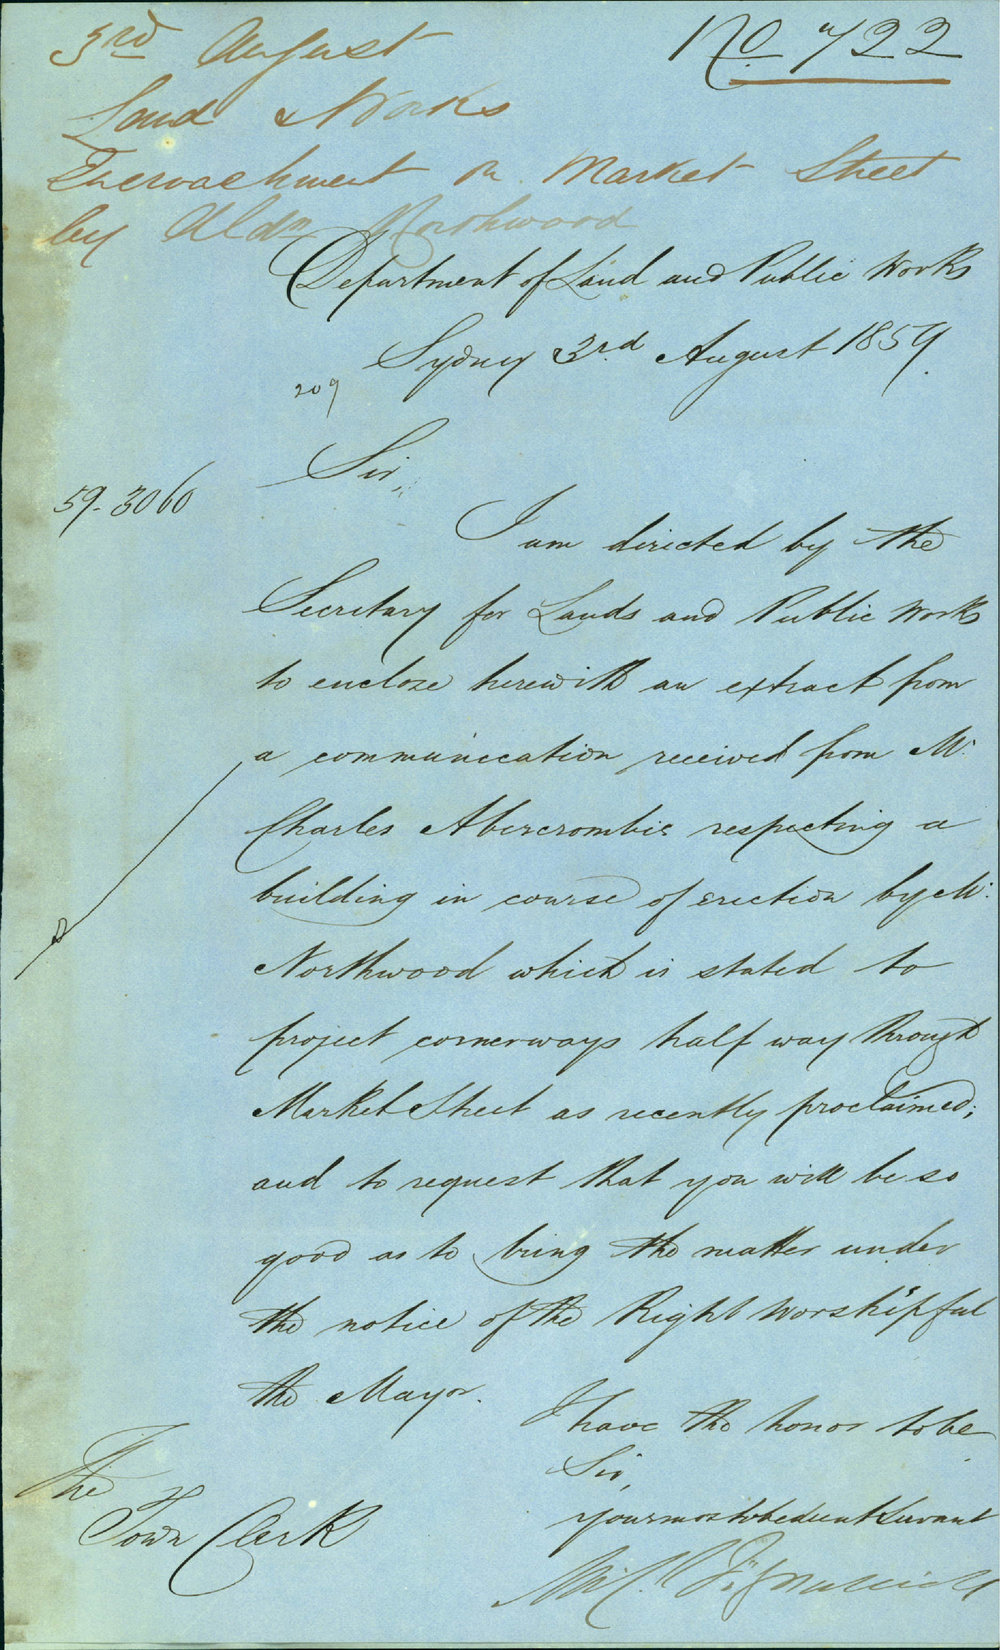 3rd August
No 722
Land & Works
Encroachment on Market Street
by Aldn Northwood
Department of Land and Public Works
Sydney 3rd August 1859.
209
Sir,
59.3060
I am directed by the
Secretary for Lands and Public Works
to enclose herewith an extract from
a communication received from Mr.
Charles Abercrombie respecting a
building in course of erection by Mr.
Northwood which is stated to
project cornerways half way through
Market Street as recently proclaimed;
and to request that you will be so
good as to bring the matter under
the notice of the Right Worshipful
the Mayor.
I have the honor to be
Sir,
your most obedient Servant
Mich. Fitzpatrick
The
Town Clerk